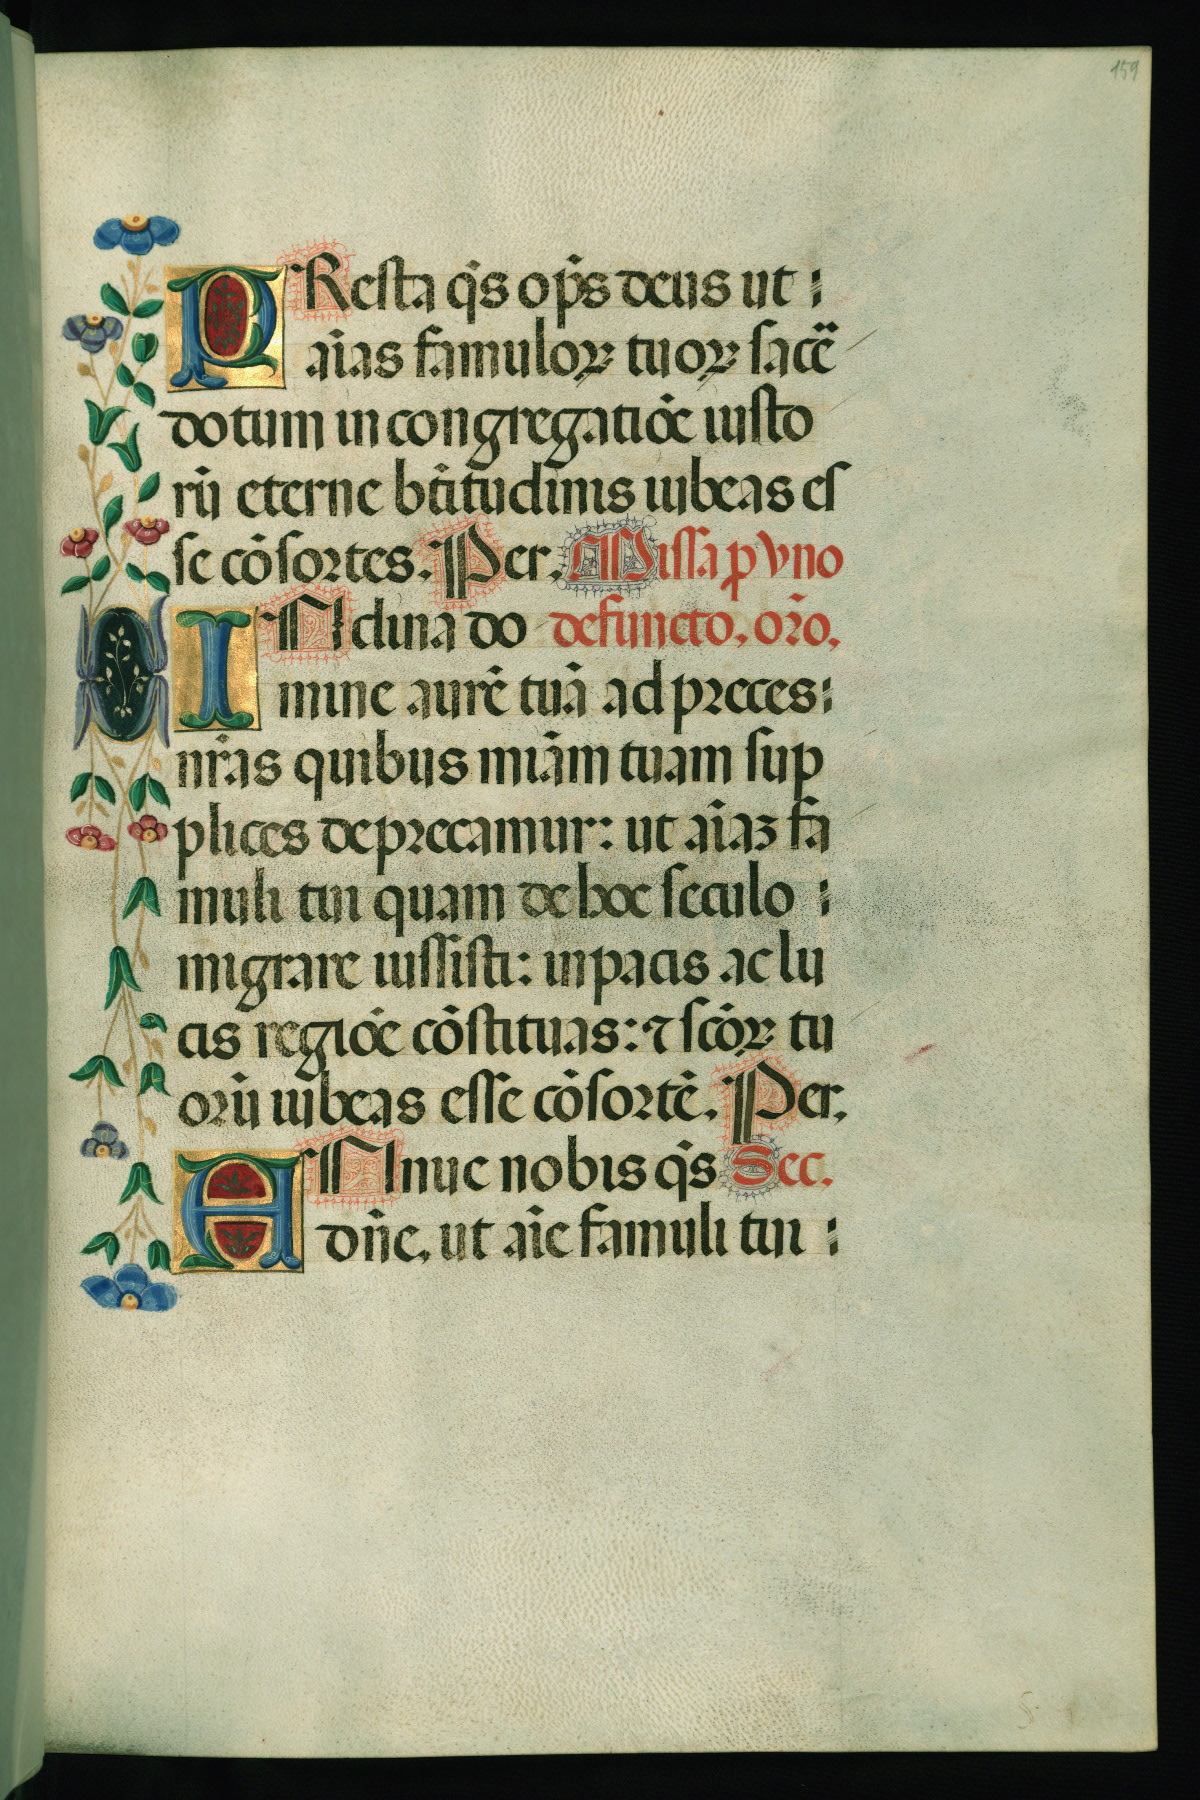 159
PResta q̃s op̃s deus ut :
aĩas famuloꝝ tuoꝝ sacẽ
dotum in congregatiõe iusto
rũ eterne bt̃itudinis iubeas es
se cõsortes. Per. Missa ꝑ vno
INclina do defuncto. or̃o.
mine aurẽ tuã ad preces :
nr̃as quibus miãm tuam sup
plices deprecamur : ut aĩaꝫ fa
muli tui quam de hoc seculo :
migrare iussisti : in pacis ac lu
cis regiõe cõstituas : ⁊ scõꝝ tu
orũ iubeas esse cõsortẽ. Per.
ANnue nobis q̃s Sec.
dñe, ut aĩe famuli tui :